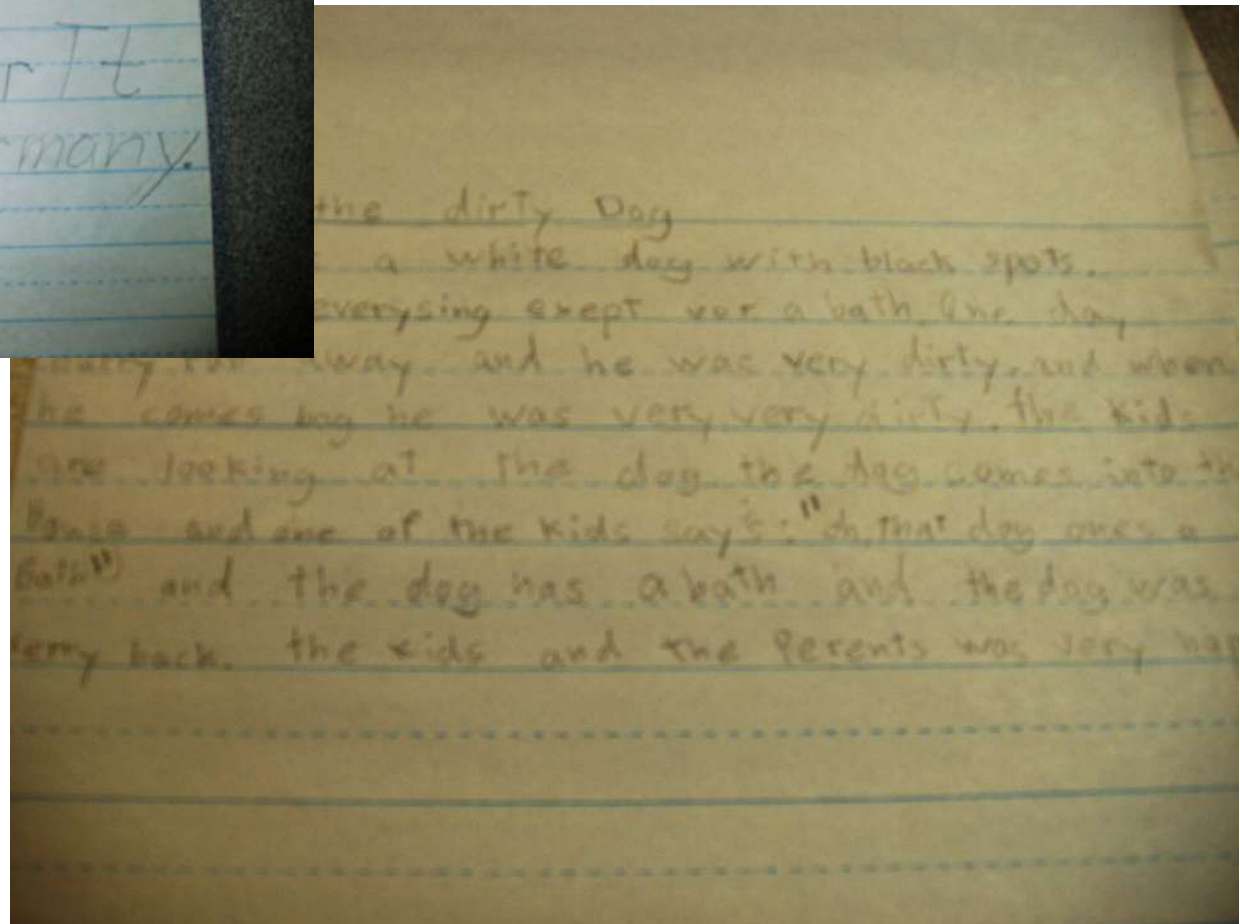 r It
many.
the dirty Dog
a white dog with black spots.
everysing exept vor a bath. One day
away and he was very dirty. and when
he comes bag he was very, very dirty. the Kids
are looking at the dog the dog comes into th
House and one of the Kids say's: "oh, that dog ones a
Bath" and the dog has a bath and the dog was
back. the kids and the Perents was very hap